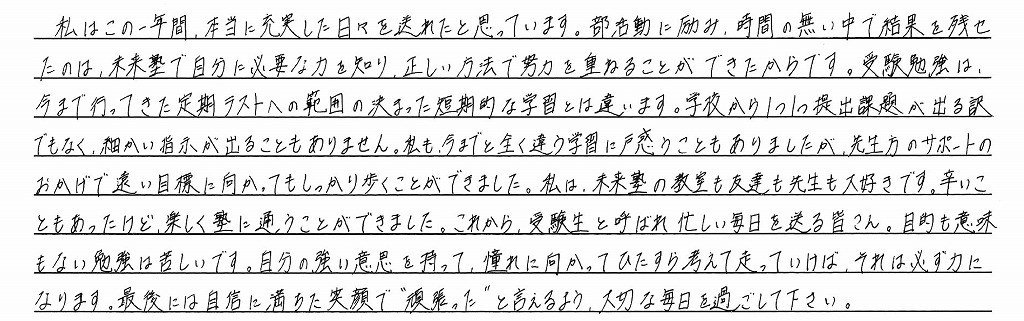 私はこの一年間、本当に充実した日々を送れたと思っています。部活動に励み、時間の無い中で結果を残せ
たのは、未来塾で自分に必要な力を知り、正しい方法で努力を重ねることができたからです。受験勉強は、
今まで行ってきた定期テストへの範囲の決まった短期的な学習とは違います。学校から1つ1つ提出課題が出る訳
でもなく、細かい指示が出ることもありません。私も、今までと全く違う学習に戸惑うこともありましたが、先生方のサポートの
おかげで遠い目標に向かってもしっかり歩くことができました。私は、未来塾の教室も友達も先生も大好きです。辛いこ
ともあったけど、楽しく塾に通うことができました。これから、受験生と呼ばれ忙しい毎日を送る皆さん。目的も意味
もない勉強は苦しいです。自分の強い意思を持って、憧れに向かってひたすら考えて走っていけば、それは必ず力に
なります。最後には自信に満ちた笑顔で"頑張った"と言えるよう、大切な毎日を過ごして下さい。